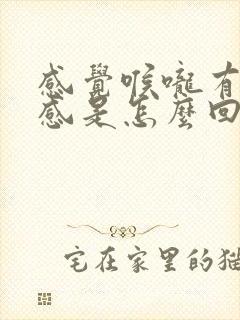 感覺喉嚨有
感是怎麼回
宅在家里的猫